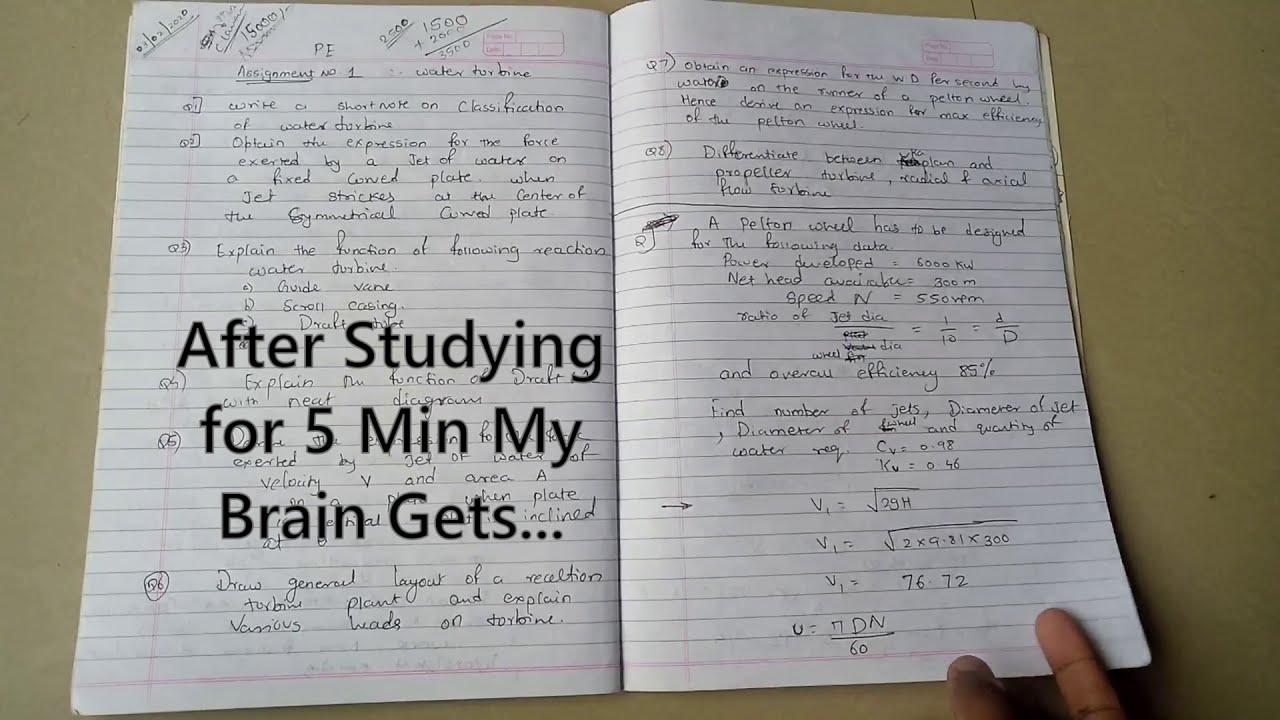 03/02/2020
5000/-
2500
1500
+ 2000
3500
PE
Page No.
Date:
Assignment No 1 :- water turbine
Q1] write a shortnote on Classification
of water turbine
Q2] Obtain the expression for the force
exerted by a Jet of water on
a fixed Curved plate. when
Jet strickes at the Center of
the Symmetrical Curved plate
Q3) Explain the function of following reaction
water turbine.
a) Guide vane
b) Scroll casing.
Draft tube
Q4) Explain the function of Draft
with neat diagram
Q5
exerted by Jet of water of
velocity V and area A
when plate
inclined
at θ
Q6 Draw general layout of a receltion
turbine plant and explain
Various heads on torbine.
After Studying
for 5 Min My
Brain Gets...
Page No.
Date:
Q7) Obtain an expression for the W D Per second by
water on the runner of a pelton wheel.
Hence derive an expression for max efficiency
of the pelton wheel.
Q8) Differentiate between Kaplan and
propeller turbine, radial & axial
flow turbine
Q] A Pelton wheel has to be designed
for The following data.
Power developed = 6000 KW
Net head available = 300 m
Speed N = 550 rpm
ratio of Jet dia / wheel dia = 1/10 = d/D
and overall efficiency 85%
Find number of jets, Diameter of jet
, Diameter of wheel and quantity of
water req. Cv = 0.98
Ku = 0.46
→ V1 = √2gH
V1 = √2×9.81×300
V1 = 76.72
u = πDN/60